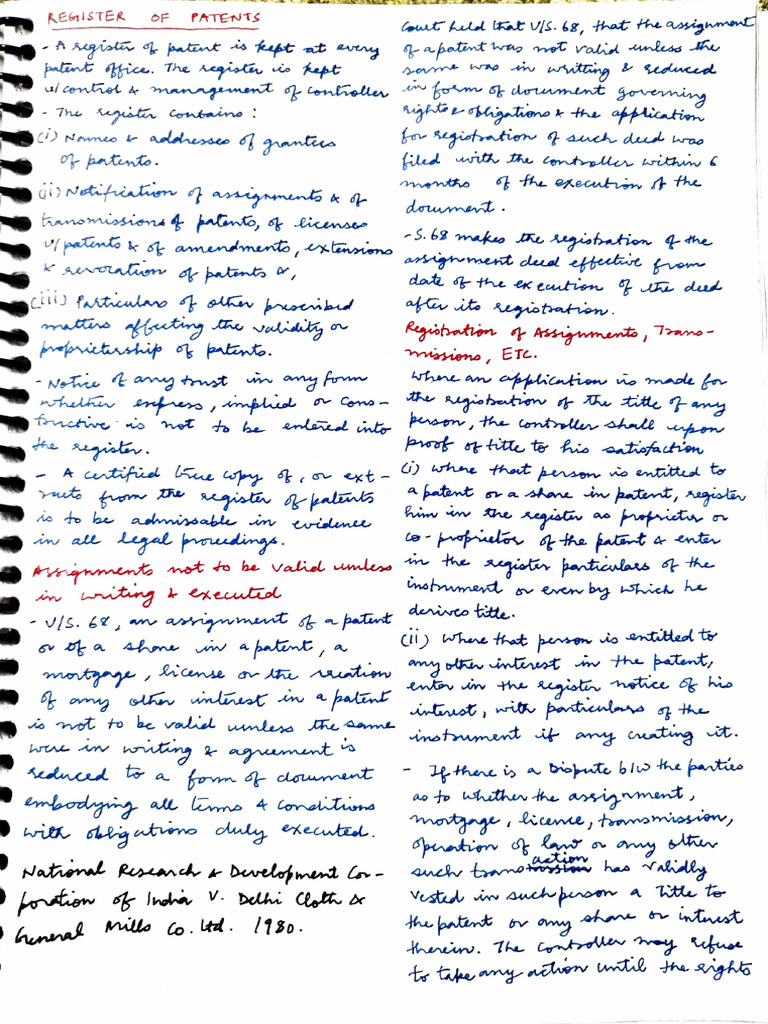 REGISTER OF PATENTS
- A register of patent is kept at every
patent office. The register is kept
u/control & management of controller
- The register contains :
(i) Names & addresses of grantees
of patents.
(ii) Notification of assignments & of
transmissions of patents, of licenses
u/patents & of amendments, extensions
& revocation of patents &,
(iii) Particulars of other prescribed
matters affecting the validity or
proprietership of patents.
- Notice of any trust in any form
whether express, implied or cons-
tructive is not to be entered into
the register.
- A certified true copy of, or ext-
racts from the register of patents
is to be admissable in evidence
in all legal proceedings.
Assignments not to be valid unless
in writing & executed
- U/S. 68, an assignment of a patent
or of a share in a patent, a
mortgage, license or the creation
of any other interest in a patent
is not to be valid unless the same
were in writing & agreement is
reduced to a form of document
embodying all terms & conditions
with obligations duly executed.
National Research & Development Cor-
poration of India V. Delhi Cloth &
General Mills Co. Ltd. 1980.
Court held that U/S. 68, that the assignment
of a patent was not valid unless the
same was in writting & reduced
in form of document governing
rights & obligations & the application
for registration of such deed was
filed with the controller within 6
months of the execution of the
document.
- S. 68 makes the registration of the
assignment deed effective from
date of the execution of the deed
after its registration.
Registration of Assignments, Trans-
missions, ETC.
Where an application is made for
the registration of the title of any
person, the controller shall upon
proof of title to his satisfaction
(i) where that person is entitled to
a patent or a share in patent, register
him in the register as proprietor or
co-proprietor of the patent & enter
in the register particulars of the
instrument or even by which he
derives title.
(ii) Where that person is entitled to
any other interest in the patent,
enter in the register notice of his
interest, with particulars of the
instrument if any creating it.
- If there is a Dispute b/w the parties
as to whether the assignment,
mortgage, licence, transmission,
operation of law or any other
such transaction has validly
vested in such person a Title to
the patent or any share or interest
therein. The controller may refuse
to take any action until the rights